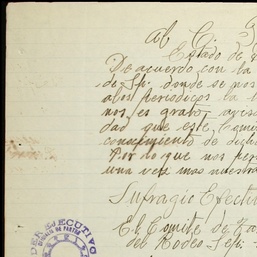 al C. G
Estado de
De acuerdo con la
de Sp. donde se nos
a los periodicos la
nos es grato, avisa
dad que este Comi
conocimiento de dich
Por lo que nos perm
una vez mas nuestra
Sufragio Efecti
El Comité de
del Rodeo. Sep.
DER EJECUTIVO